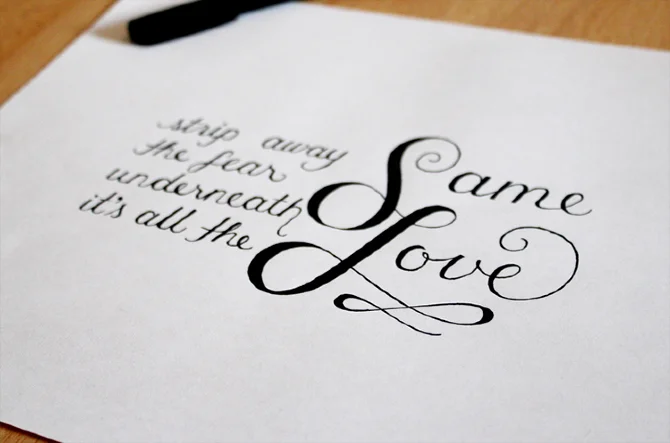 strip away
the fear
underneath
it's all the
Same
Love